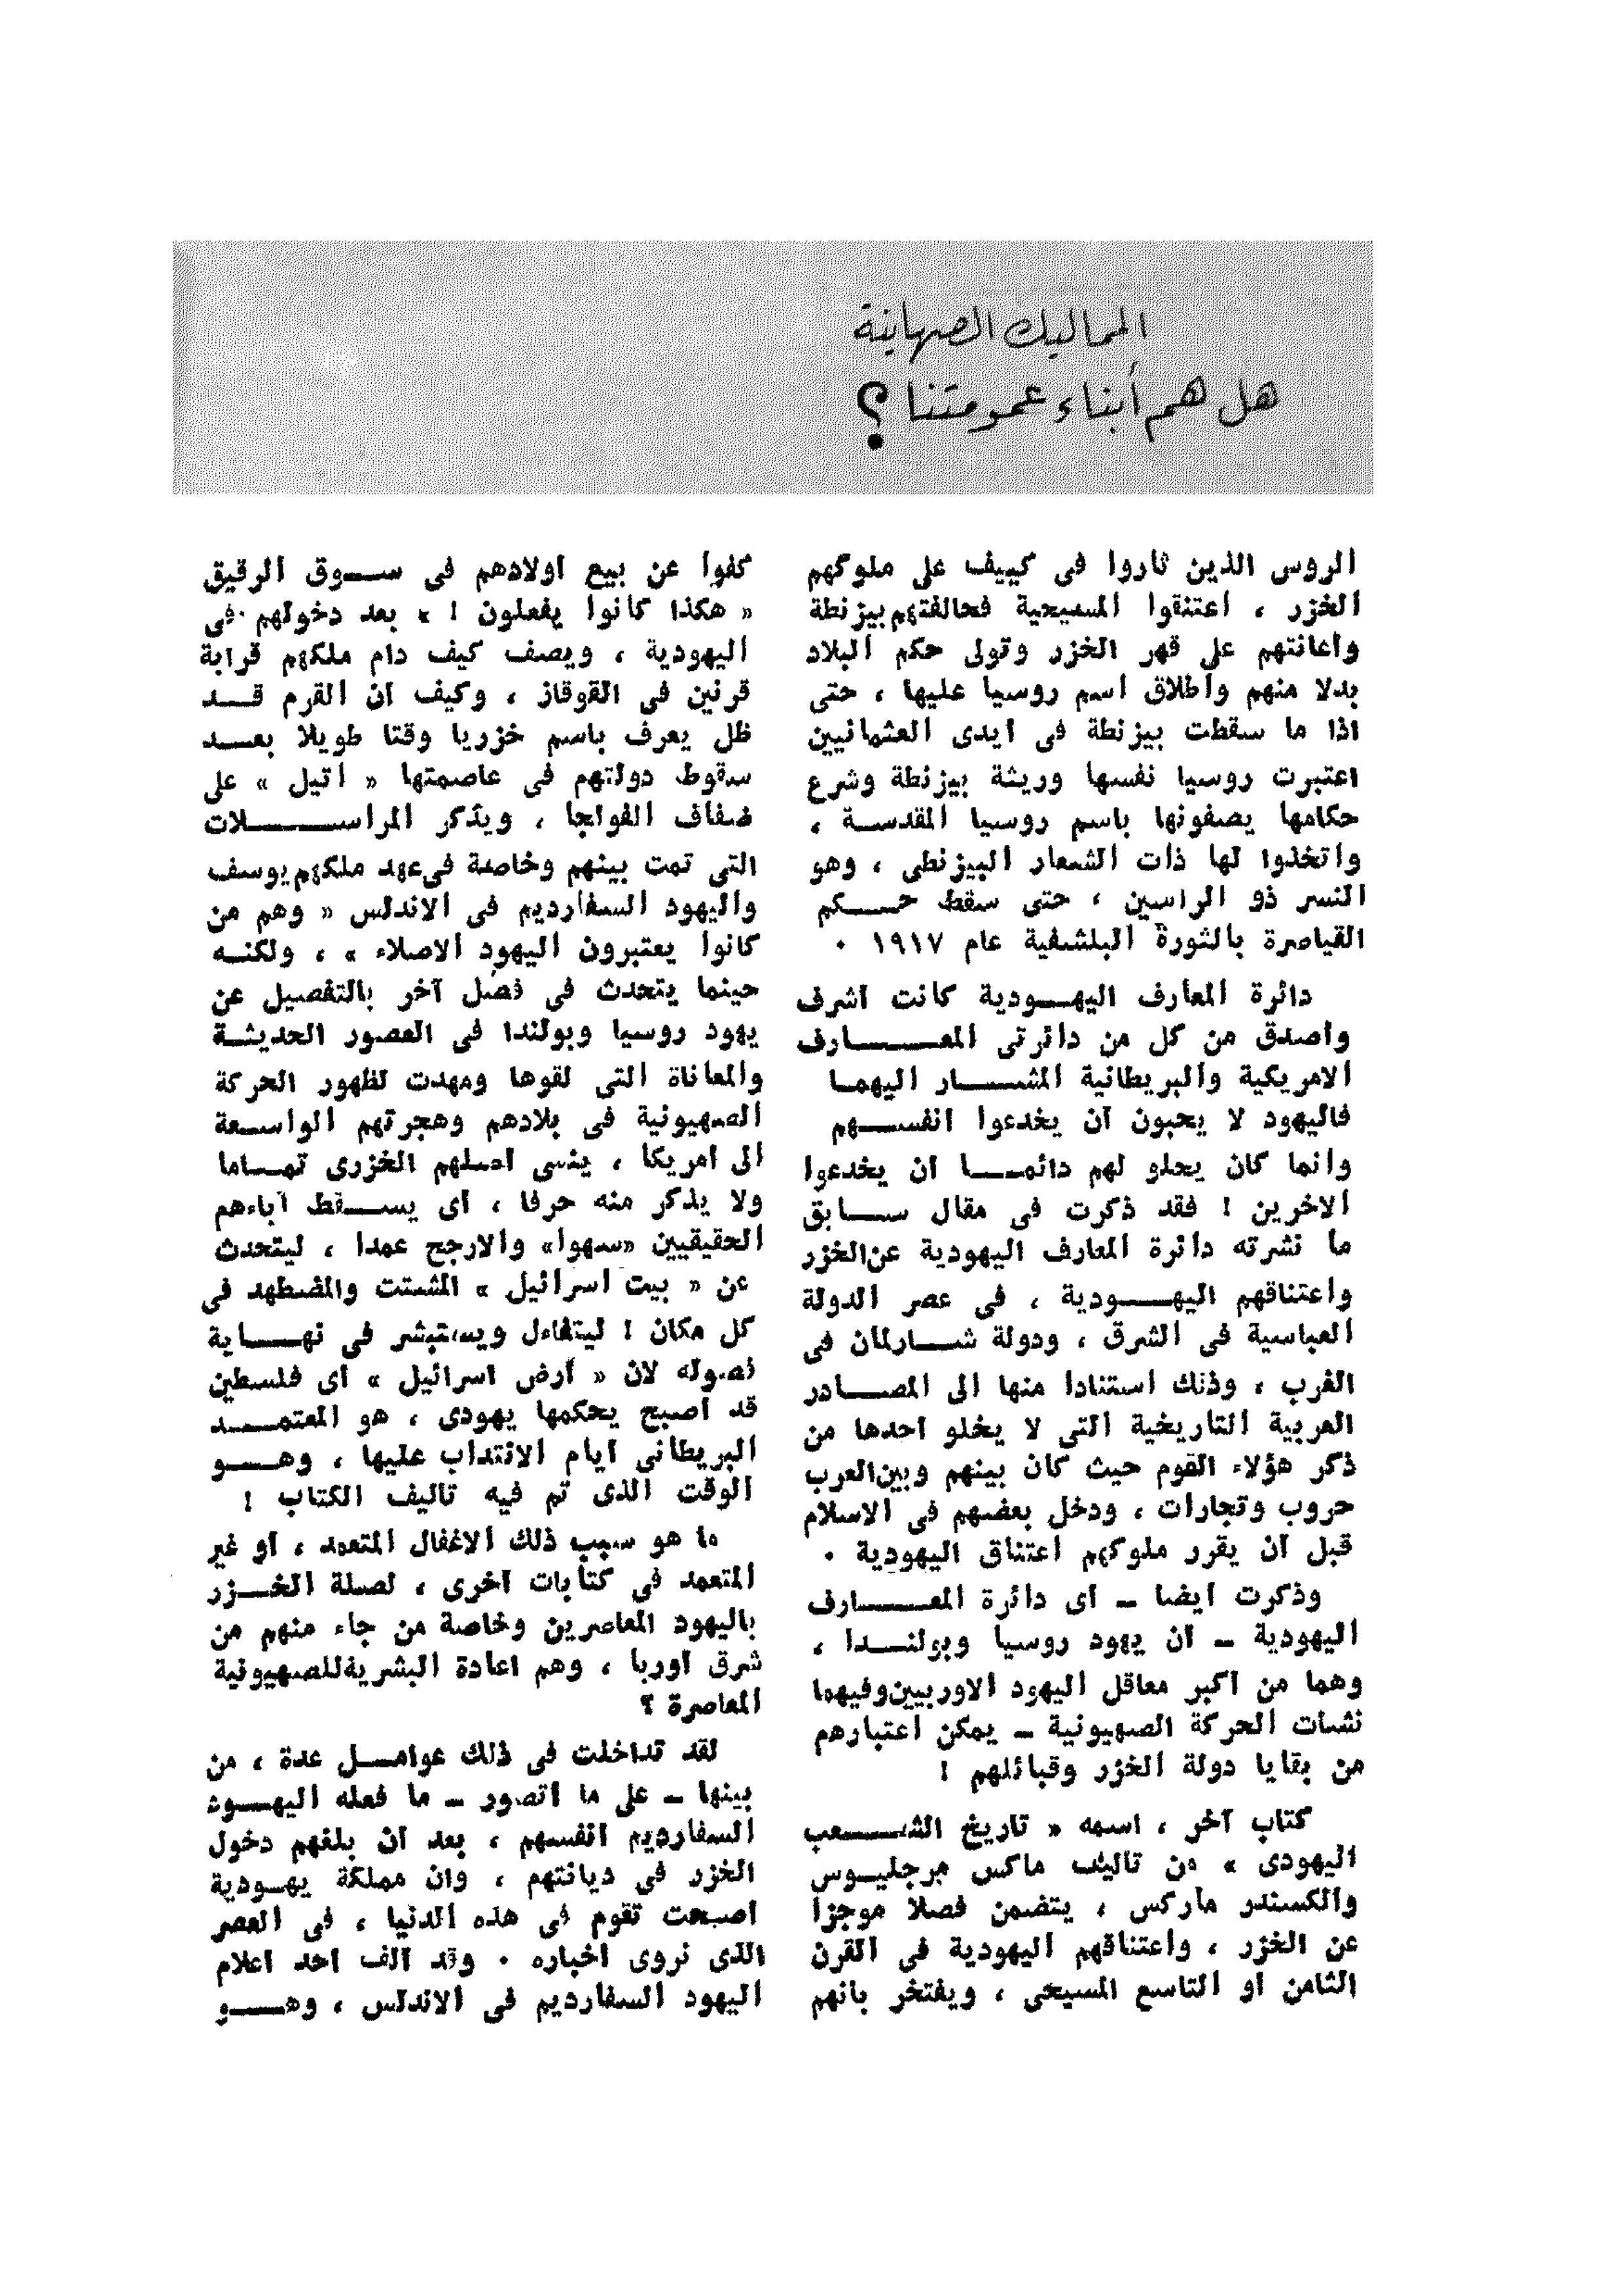 المماليك الصهاينة
هل هم أبناء عمومتنا ؟
الروس الذين ثاروا فى كييف على ملوكهم
الخزر ، اعتنقوا المسيحية فحالفتهم بيزنطة
واعانتهم على قهر الخزر وتولى حكم البلاد
بدلا منهم واطلاق اسم روسيا عليها ، حتى
اذا ما سقطت بيزنطة فى ايدى العثمانيين
اعتبرت روسيا نفسها وريثة بيزنطة وشرع
حكامها يصفونها باسم روسيا المقدسة ،
واتخذوا لها ذات الشعار البيزنطى ، وهو
النسر ذو الراسين ، حتى سقط حكم
القياصرة بالثورة البلشفية عام ١٩١٧ ٠
دائرة المعارف اليهودية كانت اشرف
واصدق من كل من دائرتى المعارف
الامريكية والبريطانية المشار اليهما
فاليهود لا يحبون ان يخدعوا انفسهم
وانما كان يحلو لهم دائما ان يخدعوا
الاخرين ! فقد ذكرت فى مقال سابق
ما نشرته دائرة المعارف اليهودية عن الخزر
واعتناقهم اليهودية ، فى عصر الدولة
العباسية فى الشرق ، ودولة شارلمان فى
الغرب ، وذلك استنادا منها الى المصادر
العربية التاريخية التى لا يخلو احدها من
ذكر هؤلاء القوم حيث كان بينهم وبين العرب
حروب وتجارات ، ودخل بعضهم فى الاسلام
قبل ان يقرر ملوكهم اعتناق اليهودية ٠
وذكرت ايضا – اى دائرة المعارف
اليهودية – ان يهود روسيا وبولندا ،
وهما من اكبر معاقل اليهود الاوربيين وفيهما
نشأت الحركة الصهيونية – يمكن اعتبارهم
من بقايا دولة الخزر وقبائلهم !
كتاب آخر ، اسمه « تاريخ الشعب
اليهودى » من تاليف ماكس مرجليوس
والكسندر ماركس ، يتضمن فصلا موجزا
عن الخزر ، واعتناقهم اليهودية فى القرن
الثامن او التاسع المسيحى ، ويفتخر بانهم
كفوا عن بيع اولادهم فى سوق الرقيق
« هكذا كانوا يفعلون ! » بعد دخولهم فى
اليهودية ، ويصف كيف دام ملكهم قرابة
قرنين فى القوقاز ، وكيف ان القرم قد
ظل يعرف باسم خزريا وقتا طويلا بعد
سقوط دولتهم فى عاصمتها « اتيل » على
ضفاف الفولجا ، ويذكر المراسلات
التى تمت بينهم وخاصة فى عهد ملكهم يوسف
واليهود السفارديم فى الاندلس « وهم من
كانوا يعتبرون اليهود الاصلاء » ، ولكنه
حينما يتحدث فى فصل آخر بالتفصيل عن
يهود روسيا وبولندا فى العصور الحديثة
والمعاناة التى لقوها ومهدت لظهور الحركة
الصهيونية فى بلادهم وهجرتهم الواسعة
الى امريكا ، ينسى اصلهم الخزرى تماما
ولا يذكر منه حرفا ، اى يسقط آباءهم
الحقيقيين «سهوا» والارجح عمدا ، ليتحدث
عن « بيت اسرائيل » المشتت والمضطهد فى
كل مكان ! ليتفاءل ويستبشر فى نهاية
فصوله لان « أرض اسرائيل » اى فلسطين
قد اصبح يحكمها يهودى ، هو المعتمد
البريطانى ايام الانتداب عليها ، وهو
الوقت الذى تم فيه تاليف الكتاب !
ما هو سبب ذلك الاغفال المتعمد ، او غير
المتعمد فى كتابات اخرى ، لصلة الخزر
باليهود المعاصرين وخاصة من جاء منهم من
شرق اوربا ، وهم اعادة البشرية للصهيونية
المعاصرة ؟
لقد تداخلت فى ذلك عوامل عدة ، من
بينها – على ما اتصور – ما فعله اليهود
السفارديم انفسهم ، بعد ان بلغهم دخول
الخزر فى ديانتهم ، وان مملكة يهودية
اصبحت تقوم فى هذه الدنيا ، فى العصر
الذى نروى اخباره ٠ وقد الف احد اعلام
اليهود السفارديم فى الاندلس ، وهو